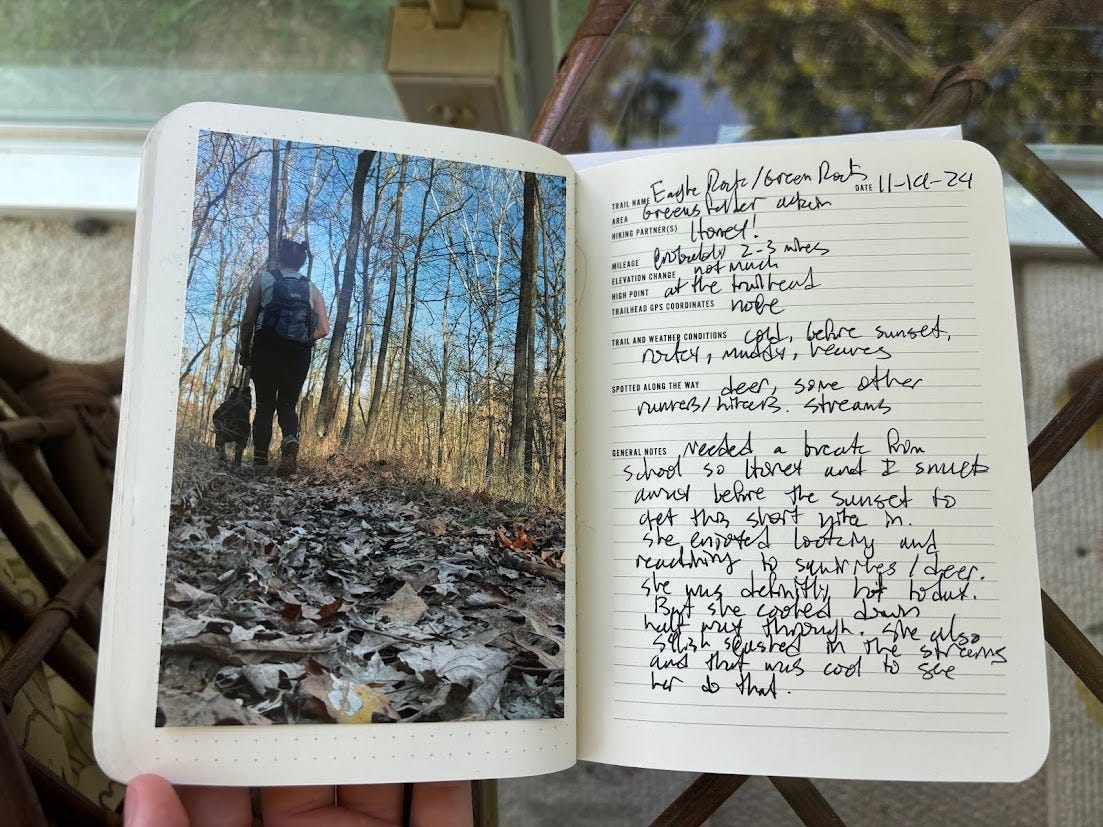 TRAIL NAME Eagle Rock/Green Rock DATE 11-19-24
AREA Greens
HIKING PARTNER(S) Honey!
MILEAGE Probably 2-3 miles
ELEVATION CHANGE not much
HIGH POINT at the trailhead
TRAILHEAD GPS COORDINATES nope
TRAIL AND WEATHER CONDITIONS cold, before sunset,
rocky, muddy, leaves
SPOTTED ALONG THE WAY deer, some other
runners/hikers. streams
GENERAL NOTES Needed a break from
school so Honey and I
before the sunset to
get this short in.
she enjoyed looking and
reacting to /deer.
she was hot today.
But she cooled down
half way through. she also
in the streams
and that was cool to see
her do that.